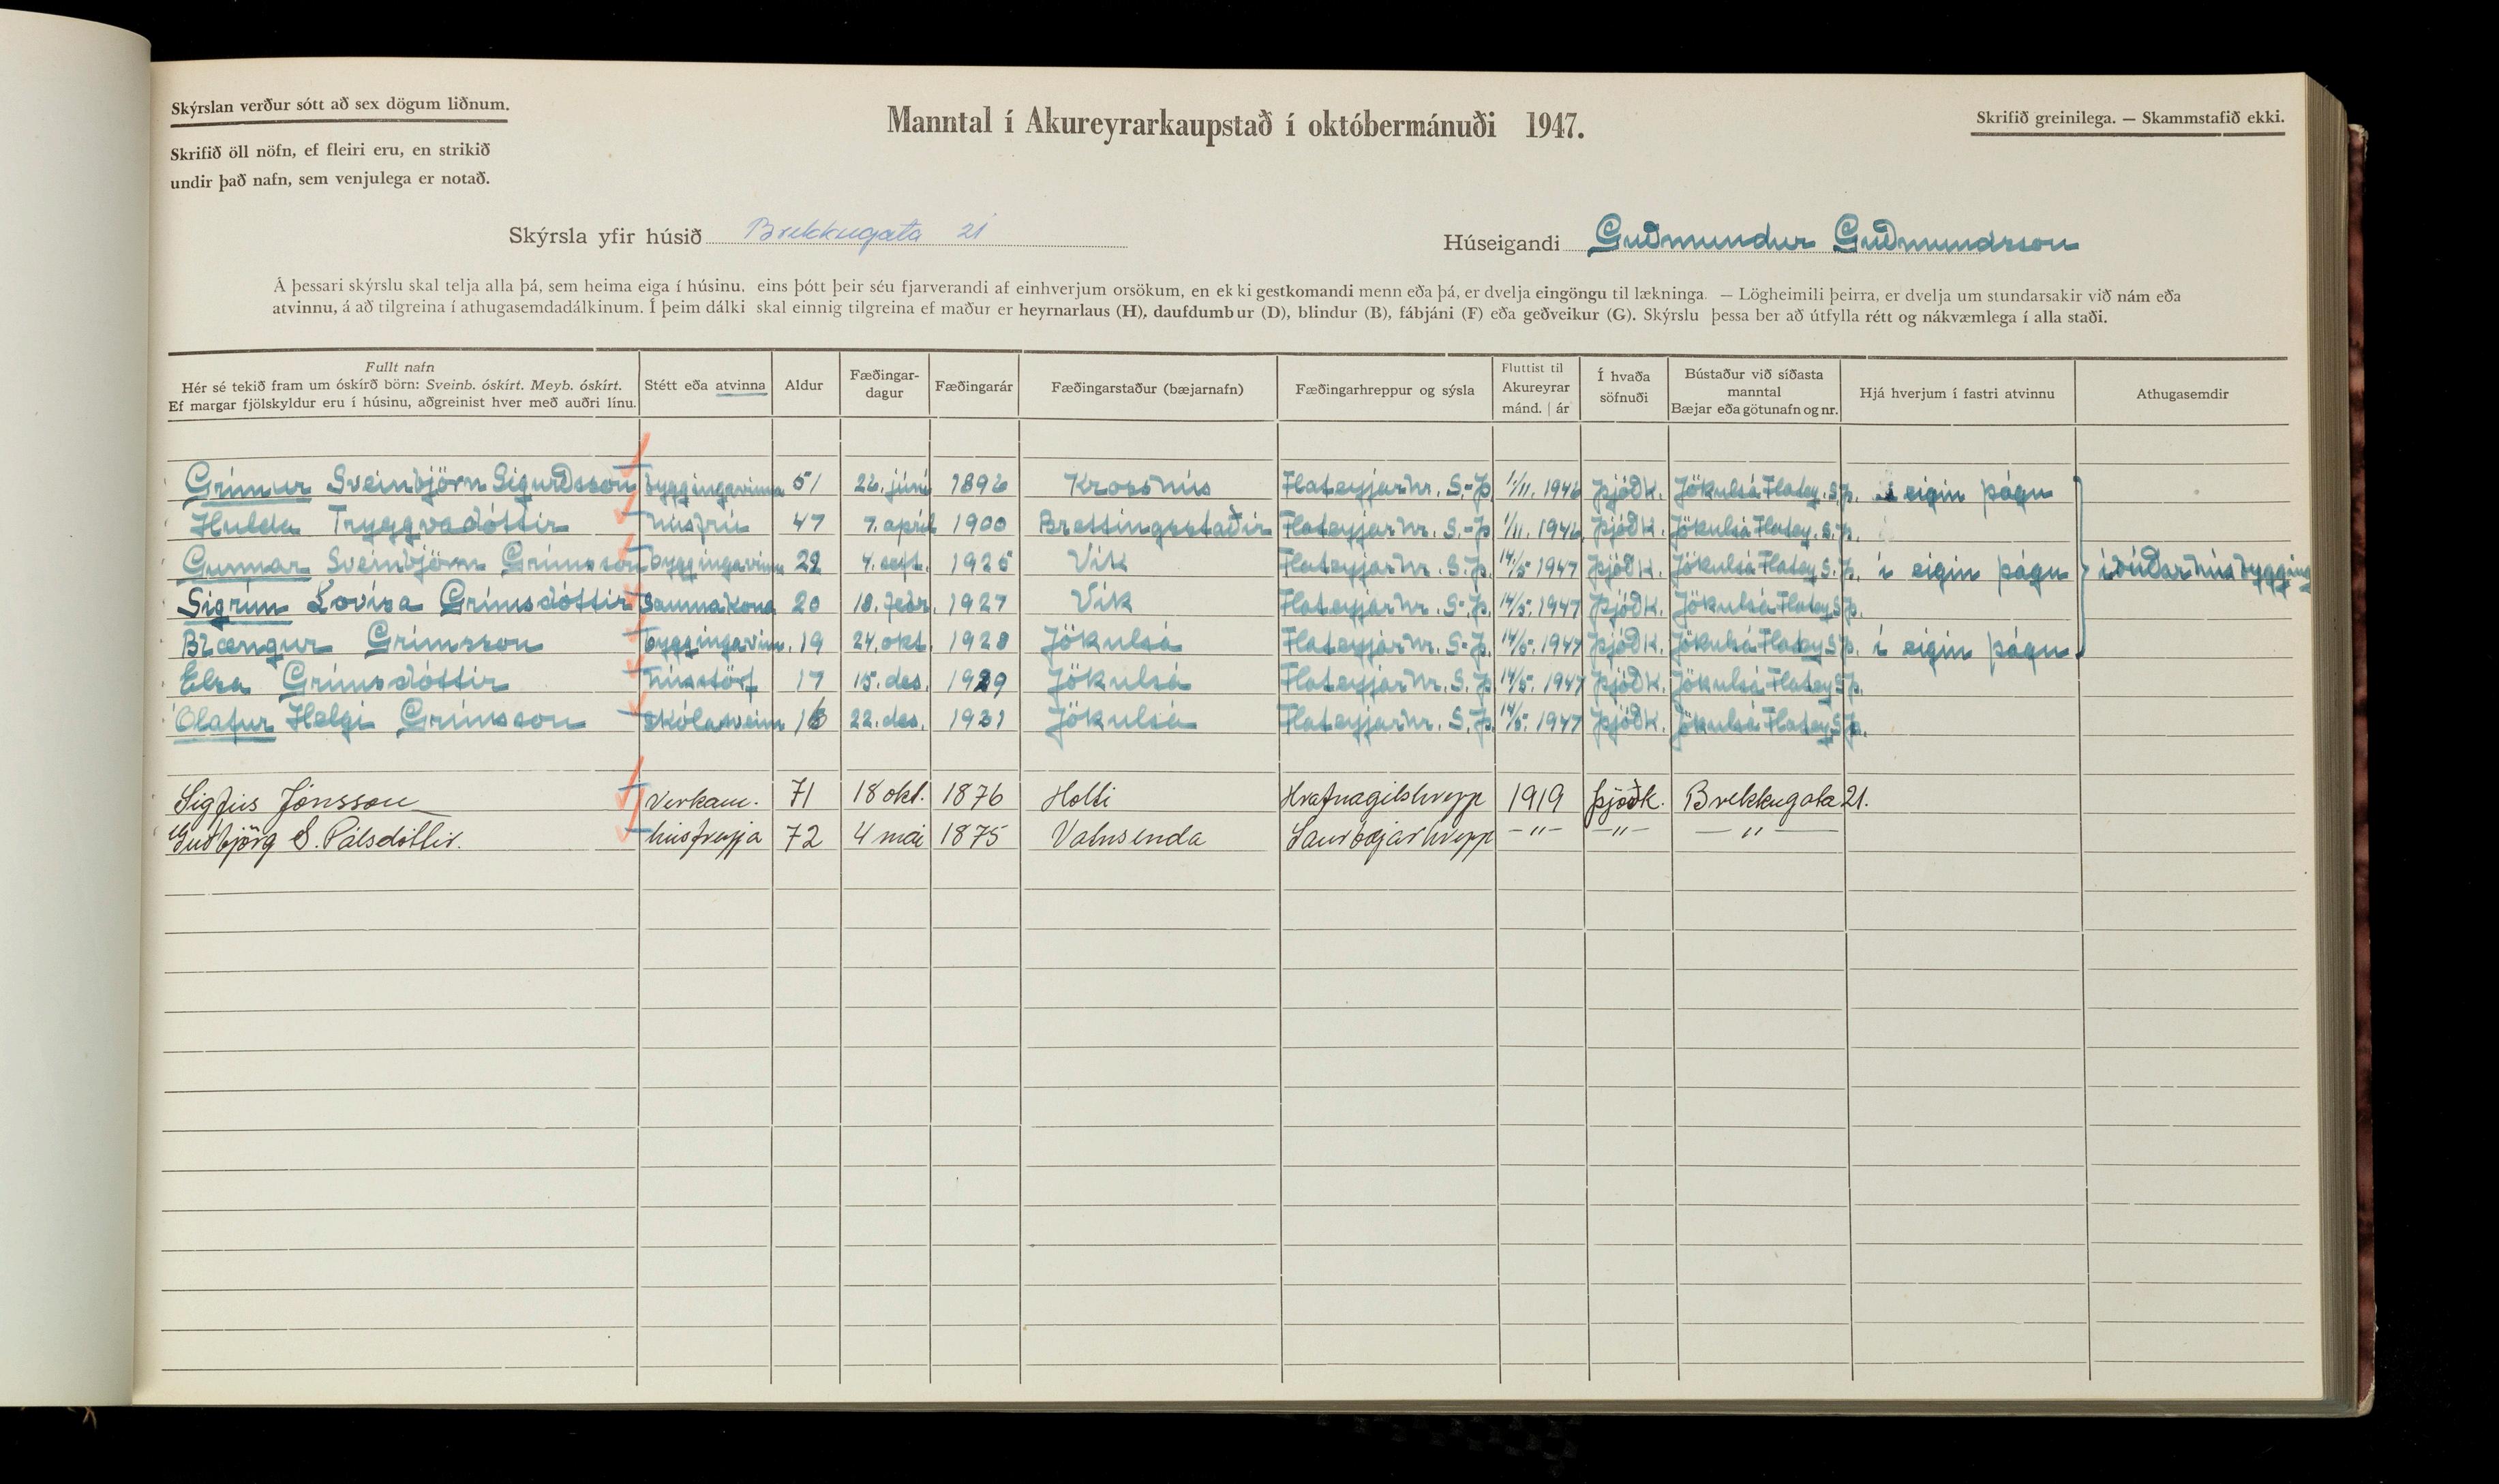 Skýrslan verður sótt að sex dögum liðnum.
Skrifið öll nöfn, ef fleiri eru, en strikið
undir það nafn, sem venjulega er notað.
Manntal í Akureyrarkaupstað í októbermánuði 1947.
Skrifið greinilega. — Skammstafið ekki.
Skýrsla yfir húsið Brekkugata 21
Húseigandi Guðmundur Guðmundsson
Á þessari skýrslu skal telja alla þá, sem heima eiga í húsinu, eins þótt þeir séu fjarverandi af einhverjum orsökum, en ekki gestkomandi menn eða þá, er dvelja eingöngu til lækninga. — Lögheimili þeirra, er dvelja um stundarsakir við nám eða
atvinnu, á að tilgreina í athugasemdadálkinum. Í þeim dálki skal einnig tilgreina ef maður er heyrnarlaus (H), daufdumbur (D), blindur (B), fábjáni (F) eða geðveikur (G). Skýrslu þessa ber að útfylla rétt og nákvæmlega í alla staði.
Fullt nafn
Hér sé tekið fram um óskírð börn: Sveinb. óskírt. Meyb. óskírt.
Ef margar fjölskyldur eru í húsinu, aðgreinist hver með auðri línu.
Stétt eða atvinna
Aldur
Fæðingar-
dagur
Fæðingarár
Fæðingarstaður (bæjarnafn)
Fæðingarhreppur og sýsla
Fluttist til
Akureyrar
mánd. | ár
Í hvaða
söfnuði
Bústaður við síðasta
manntal
Bæjar eða götunafn og nr.
Hjá hverjum í fastri atvinnu
Athugasemdir
Grímur Sveinbjörn Sigurðsson byggingavinna 51 26. júní 1896 Krosshús Flateyjarhr. S.-Þ 1/11. 1946 Þjóðk. Jökulsá Flatey. S.Þ. í eigin þágu
Hulda Tryggvadóttir húsfrú 47 7. apríl 1900 Brettingsstaðir Flateyjarhr. S.-Þ 1/11. 1946 Þjóðk. Jökulsá Flatey. S.Þ.
Gunnar Sveinbjörn Grímsson byggingavinna 22 4. sept. 1925 Vík Flateyjarhr. S.Þ. 14/5 1947 Þjóðk. Jökulsá Flatey S.Þ. í eigin þágu íbúðarhúsbygging
Sigrún Lovísa Grímsdóttir Saumakona 20 10. febr. 1927 Vík Flateyjarhr. S.-Þ. 14/5. 1947 Þjóðk. Jökulsá Flatey S.Þ.
Brængur Grímsson byggingavinn. 19 24. okt. 1928 Jökulsá Flateyjarhr. S-Þ. 14/5. 1947 Þjóðk. Jökulsá Flatey S.Þ. í eigin þágu
Elsa Grímsdóttir hússtörf 17 15. des. 1929 Jökulsá Flateyjarhr. S.Þ. 14/5. 1947 Þjóðk. Jökulsá Flatey S.Þ.
Ólafur Helgi Grímsson skólasveinn 16 22. des. 1931 Jökulsá Flateyjarhr. S.Þ. 14/5. 1947 Þjóðk. Jökulsá Flatey S.Þ.
Sigfús Jónsson Verkam. 71 18 okt. 1876 Holti Hrafnagilshrepp 1919 Þjóðk. Brekkugata 21.
Guðbjörg S. Pálsdóttir. húsfreyja 72 4 maí 1875 Vatnsenda Saurbæjarhrepp —"— —"— —"—